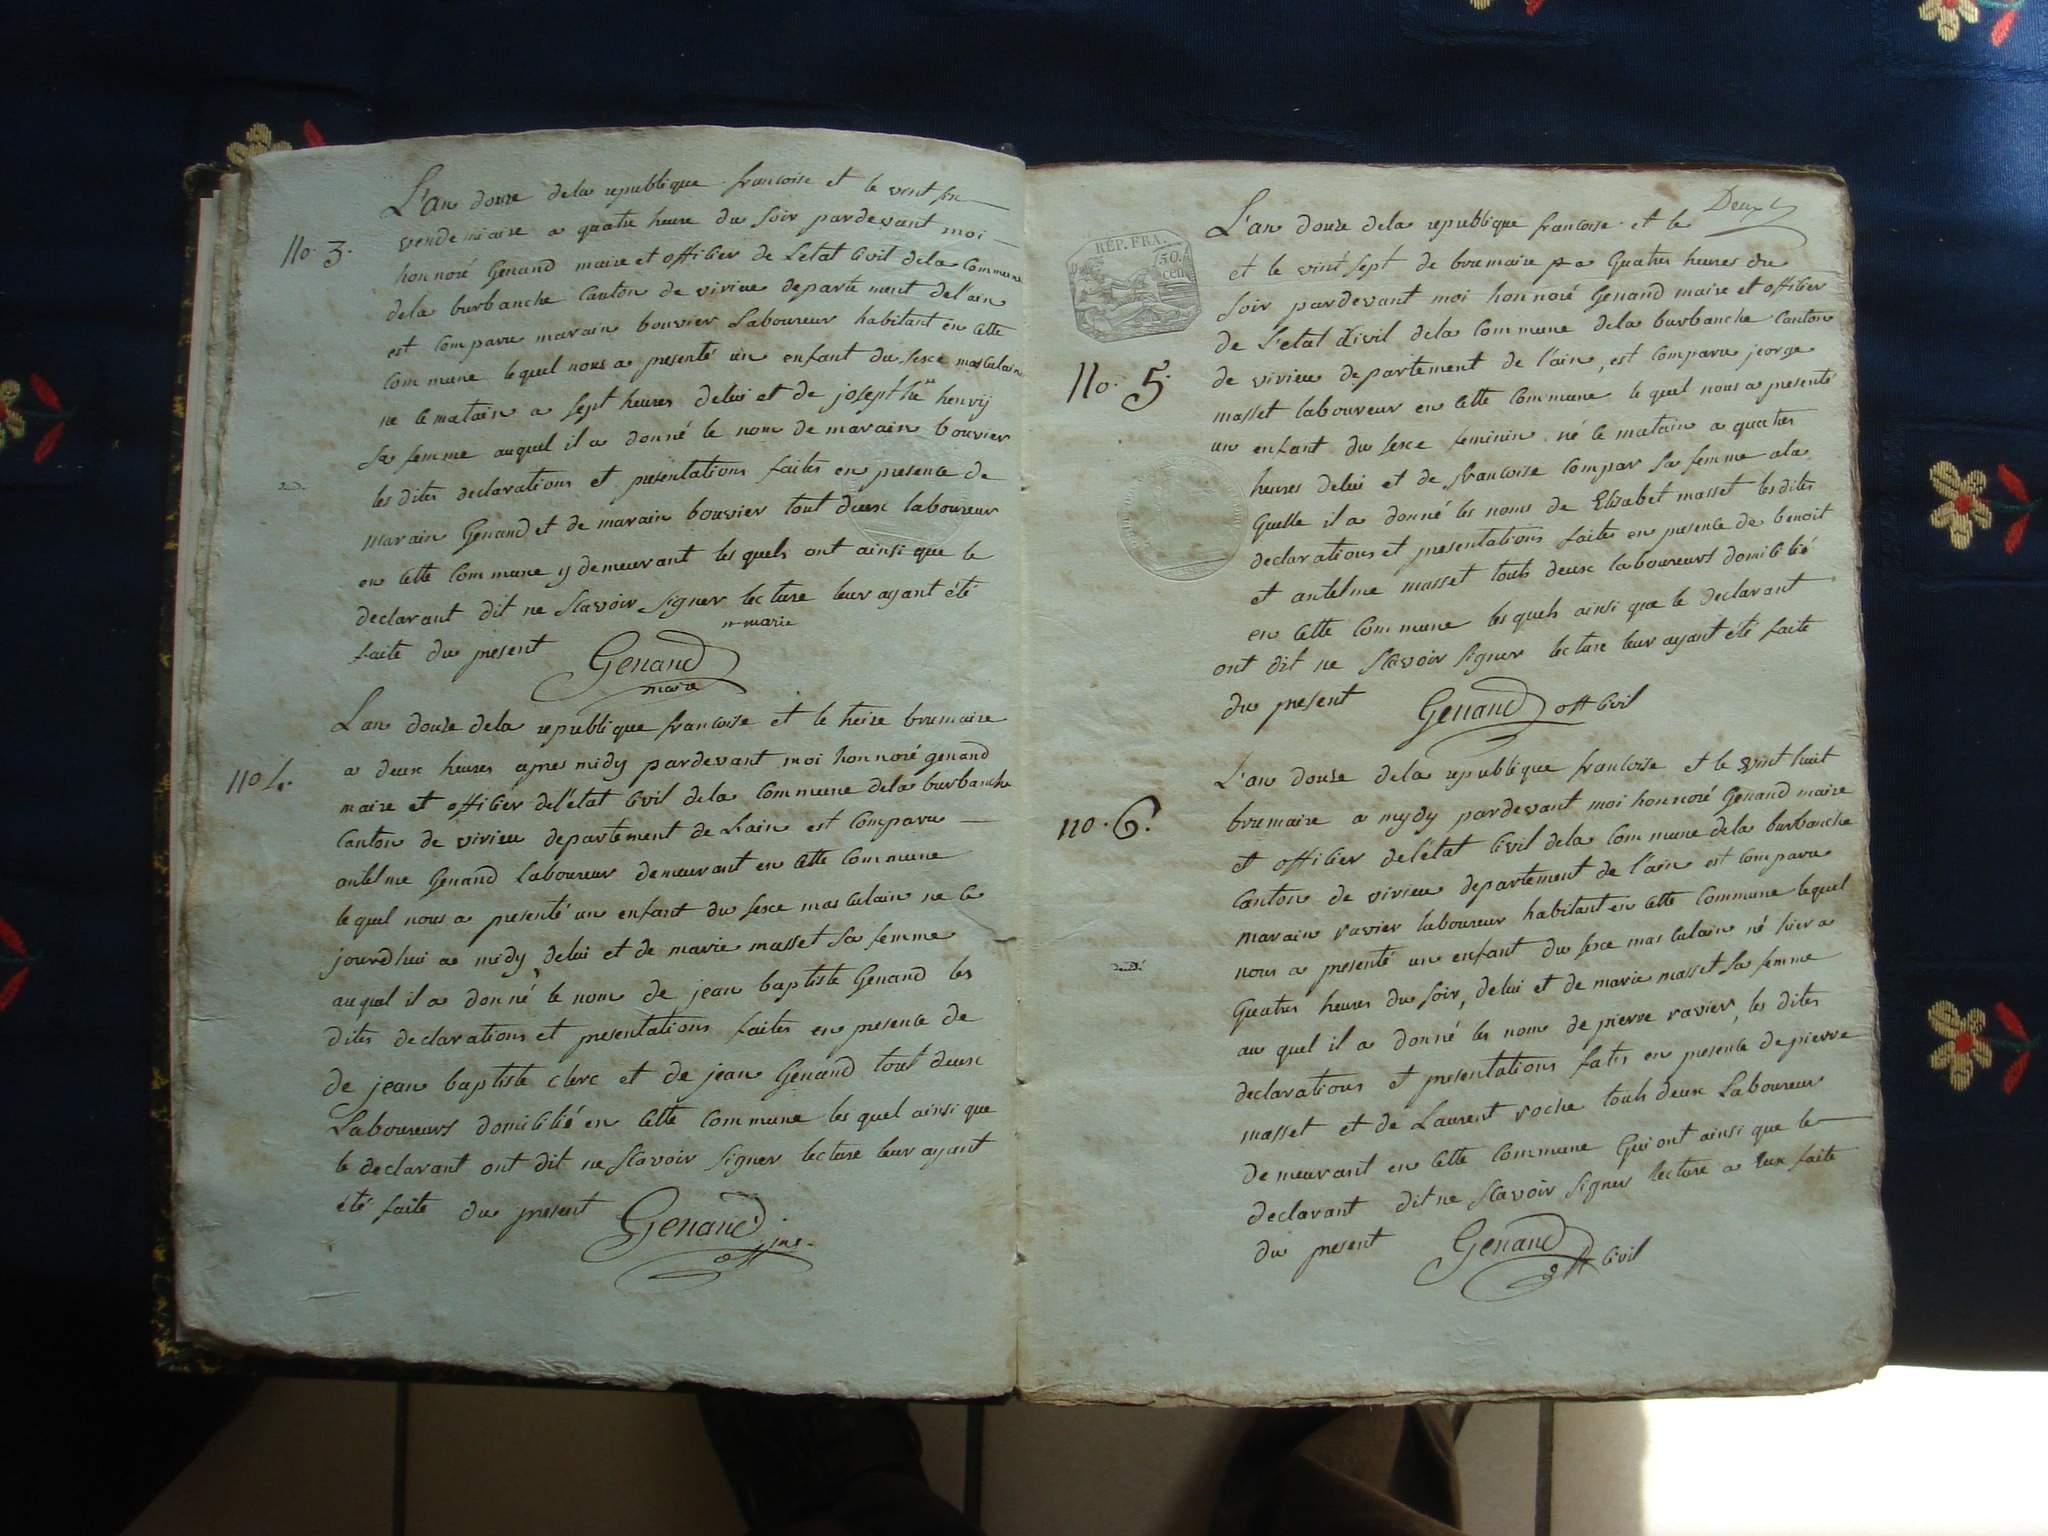 no. 3.
L'an douze dela republique francoise et le vint six
vendemiaire a quatre heure du soir pardevant moi
honnoré Genand maire et officier de Letat civil dela commune
dela burbanche canton de virieu departement del'ain
est comparu marain bouvier Laboureur habitant en cette
commune lequel nous a presenté un enfant du sexe masculain
ne ce matain a sept heures delui et de josephte henrij
sa femme auquel il a donné le nom de marain bouvier
les dites declarations et presentations faites en presence de
marain Genand et de marain bouvier tout deux laboureur
en cette commune y demeurant les quels ont ainsi que le
declarant dit ne scavoir signer lecture leur ayant été
faite du present
Genand
maire
no 4.
L'an douze dela republique francoise et le treize brumaire
a deux heures apres midy pardevant moi honnoré genand
maire et officier del'état civil dela commune dela burbanche
canton de virieu departement de L'ain est comparu
antelme Genand Laboureur demeurant en cette commune
lequel nous a presenté un enfant du sexe masculain ne ce
jourdhui a midy delui et de marie masset sa femme
auquel il a donné le nom de jean baptiste Genand les
dites declarations et presentations faites en presence de
de jean baptiste clerc et de jean Genand tout deux
Laboureurs domicilié en cette commune les quel ainsi que
le declarant ont dit ne scavoir signer lecture leur ayant
été faite du present
Genand
Deux
RÉP. FRA.
50.
cen
no. 5.
L'an douze dela republique francoise et le
et le vint sept de brumaire a quatres heures du
soir pardevant moi honnoré Genand maire et officier
de L'etat civil dela commune dela burbanche canton
de virieu departement de l'ain, est comparu jeorge
masset laboureur en cette commune lequel nous a presenté
un enfant du sexe feminin né ce matain a quatres
heures delui et de francoise compar sa femme ala
quelle il a donné les noms de Elisabet masset les dites
declarations et presentations faites en presence de benoit
et antelme masset touts deux laboureurs domicilié
en cette commune les quels ainsi que le declarant
ont dit ne scavoir signer lecture leur ayant été faite
du present
Genand off civil
no. 6.
L'an douze dela republique francoise et le vint huit
brumaire a mydy pardevant moi honnoré Genand maire
et officier del'état civil dela commune dela burbanche
canton de virieu departement de l'ain est comparu
marain ravier laboureur habitant en cette commune lequel
nous a presenté un enfant du sexe masculain né hier a
quatres heures du soir, delui et de marie masset sa femme
au quel il a donné les nom de pierre ravier, les dites
declarations et presentations fates en presence de pierre
masset et de Laurent roche touts deux Laboureur
demeurant en cette commune qui ont ainsi que le
declarant dit ne scavoir signer lecture a eux faite
du present
Genand
off civil